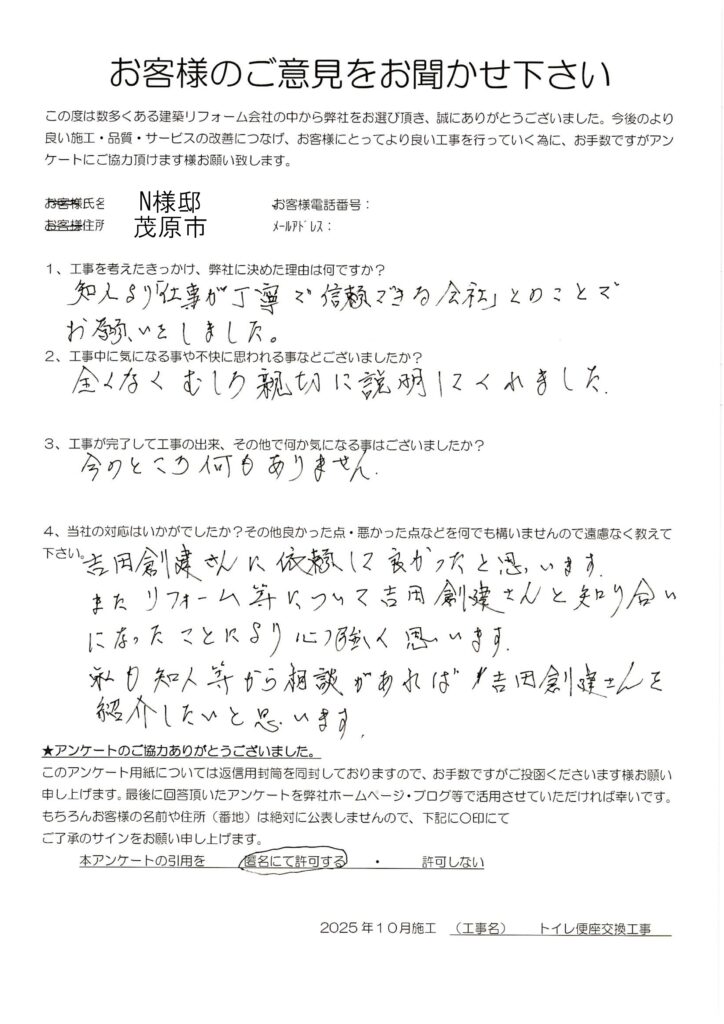 お客様のご意見をお聞かせ下さい
この度は数多くある建築リフォーム会社の中から弊社をお選び頂き、誠にありがとうございました。今後のより
良い施工・品質・サービスの改善につなげ、お客様にとってより良い工事を行っていく為に、お手数ですがアン
ケートにご協力頂けます様お願い致します。
お客様氏名 N様邸 お客様電話番号：
お客様住所 茂原市 ﾒｰﾙｱﾄﾞﾚｽ：
１、工事を考えたきっかけ、弊社に決めた理由は何ですか？
知人より「仕事が丁寧で信頼できる会社」とのことで
お願いをしました。
２、工事中に気になる事や不快に思われる事などございましたか？
全くなくむしろ親切に説明してくれました.
３、工事が完了して工事の出来、その他で何か気になる事はございましたか？
今のところ何もありません.
４、当社の対応はいかがでしたか？その他良かった点・悪かった点などを何でも構いませんので遠慮なく教えて
下さい。
吉田創建さんに依頼して良かったと思います.
またリフォーム等について吉田創建さんと知り合い
になったことにより心強く思います.
私も知人等から相談があれば吉田創建さんを
紹介したいと思います.
★アンケートのご協力ありがとうございました。
このアンケート用紙については返信用封筒を同封しておりますので、お手数ですがご投函くださいます様お願い
申し上げます。最後に回答頂いたアンケートを弊社ホームページ・ブログ等で活用させていただければ幸いです。
もちろんお客様の名前や住所（番地）は絶対に公表しませんので、下記に〇印にて
ご了承のサインをお願い申し上げます。
本アンケートの引用を 匿名にて許可する ・ 許可しない
2025年１０月施工 （工事名） トイレ便座交換工事